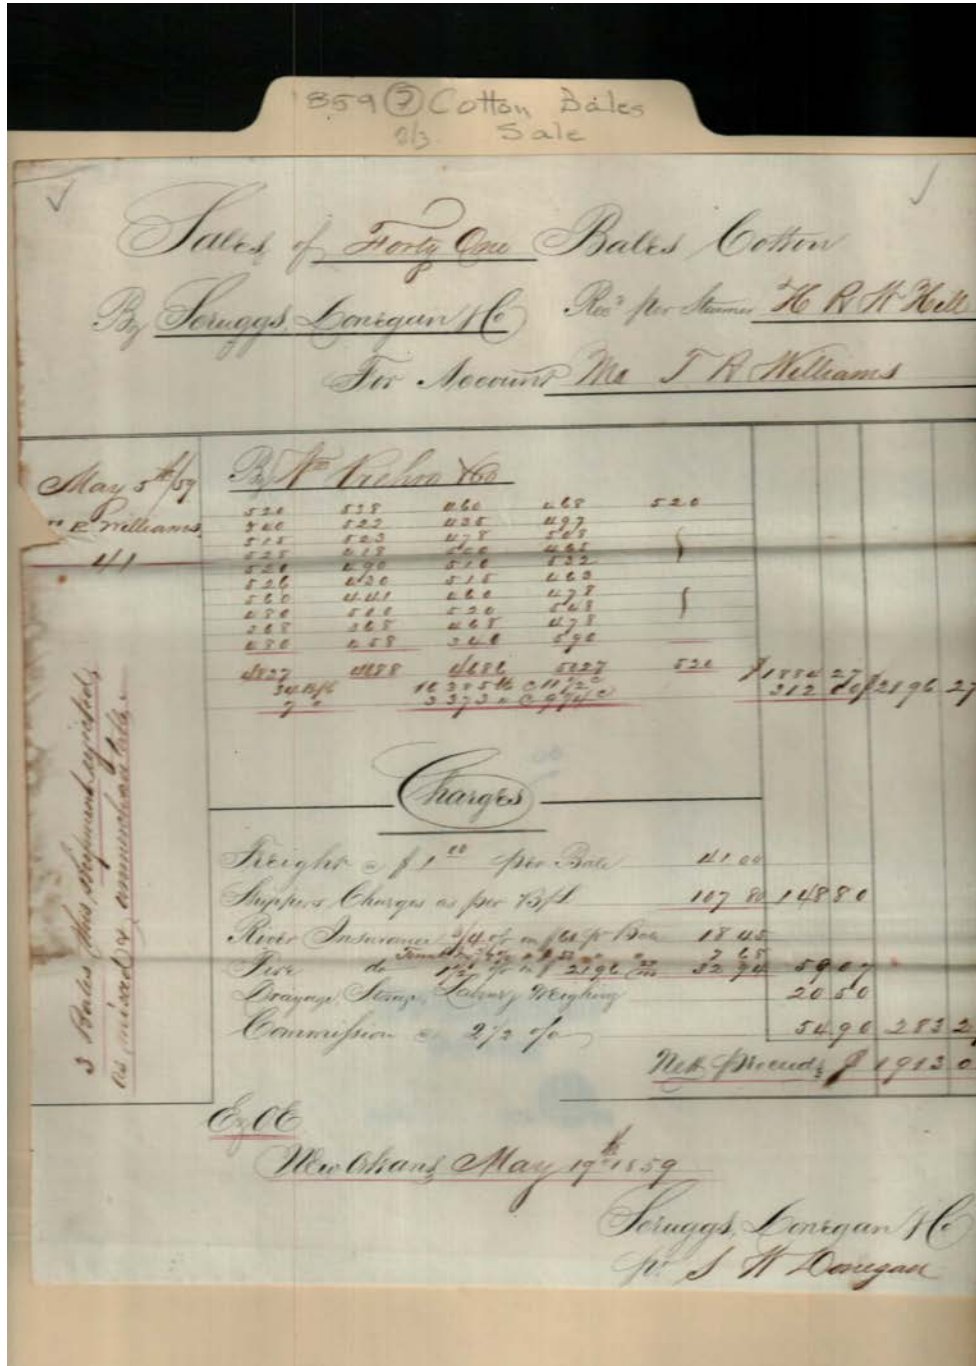 1859 (7) Cotton Bales
Sale
Sales of Forty One Bales Cotton
By Scruggs, Donegan & Co Rec'd per Steamer H R W Hill
For Account Mr T R Williams
May 5th/59
By Wm &Co
R Williams
41
520 528 460 468 520
540 522 435 497
515 523 478 548
525 418 500 465
520 490 510 532
526 430 515 463
560 441 460 478
480 510 520 548
268 368 468 478
480 458 340 590
4827 4688 4686 5027 520 $1884 27
34 B/s 16385 lb @ 11½ c 312 00 $2196 27
7 " 3373 " @ 9¼ c
3 Bales this shipment rejected
as mixed & unmerchantable
Charges
Freight @ $1 00 per Bale 41 00
Shippers Charges as per B/L 107 80 148 80
River Insurance 3/4 o/o on $60 pr Bale 18 45
7 68
Fire do 1½ o/o on $2196 27/100 32 94 59 07
Drayage, Storage, Labour, Weighing 20 50
Commission @ 2½ o/o 54 90 283 2
Nett Proceeds $ 1913 0
E, O E
New Orleans May 19th 1859
Scruggs, Donegan & Co
pr S W Donegan